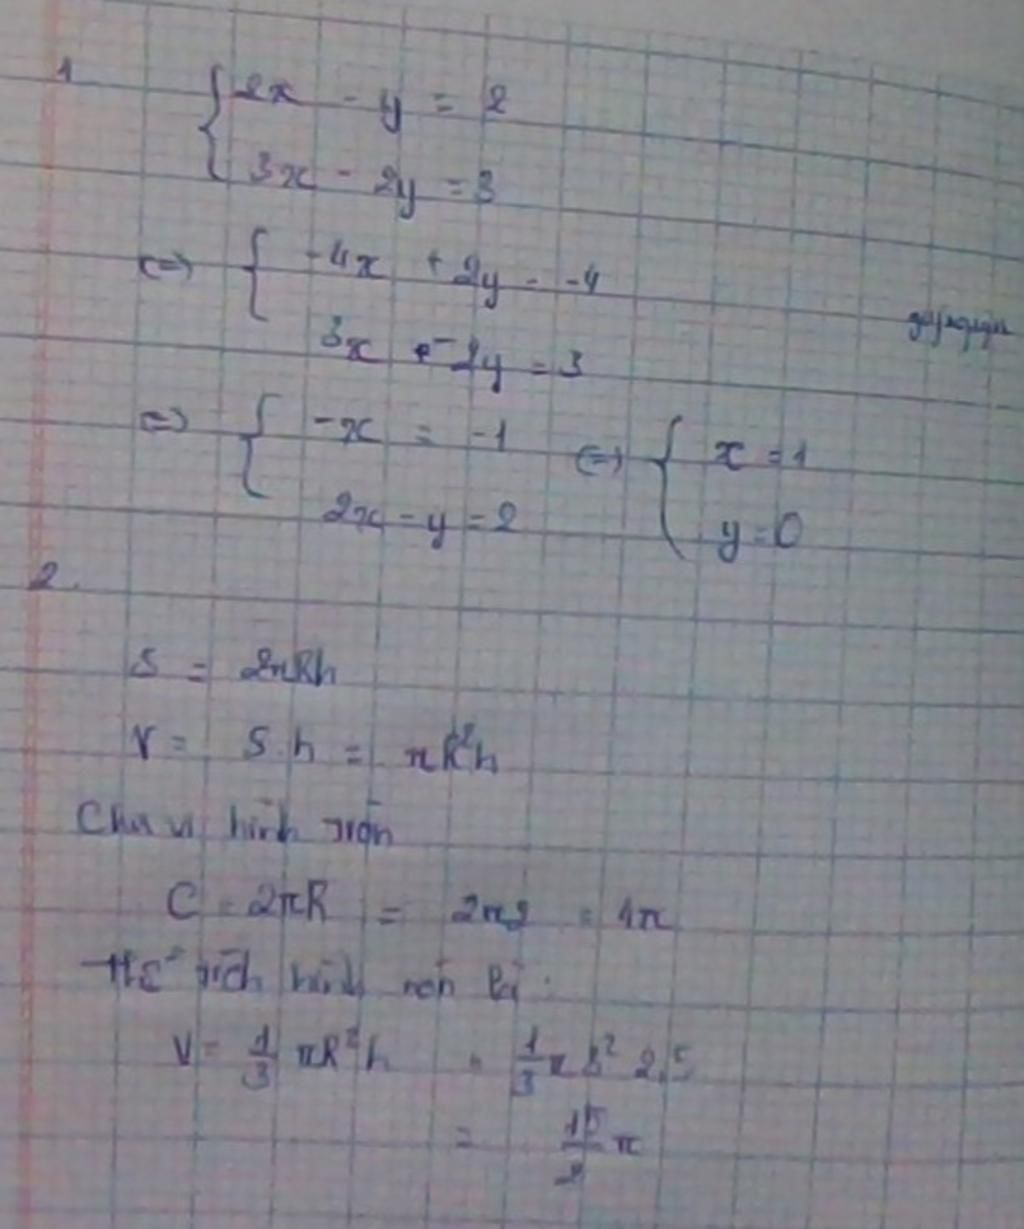 1
{ 2x - y = 2
3x - 2y = 3
<=> { -4x + 2y = -4
3x - 2y = 3
<=> { -x = -1 <=> { x = 1
2x - y = 2 y = 0
2.
S = 2πRh
V = S.h = πR²h
Chu vi hình tròn
C = 2πR = 2π2 = 4π
Thể tích hình nón là :
V = 1/3 πR²h = 1/3 π 3² 2,5
= 15/2 π